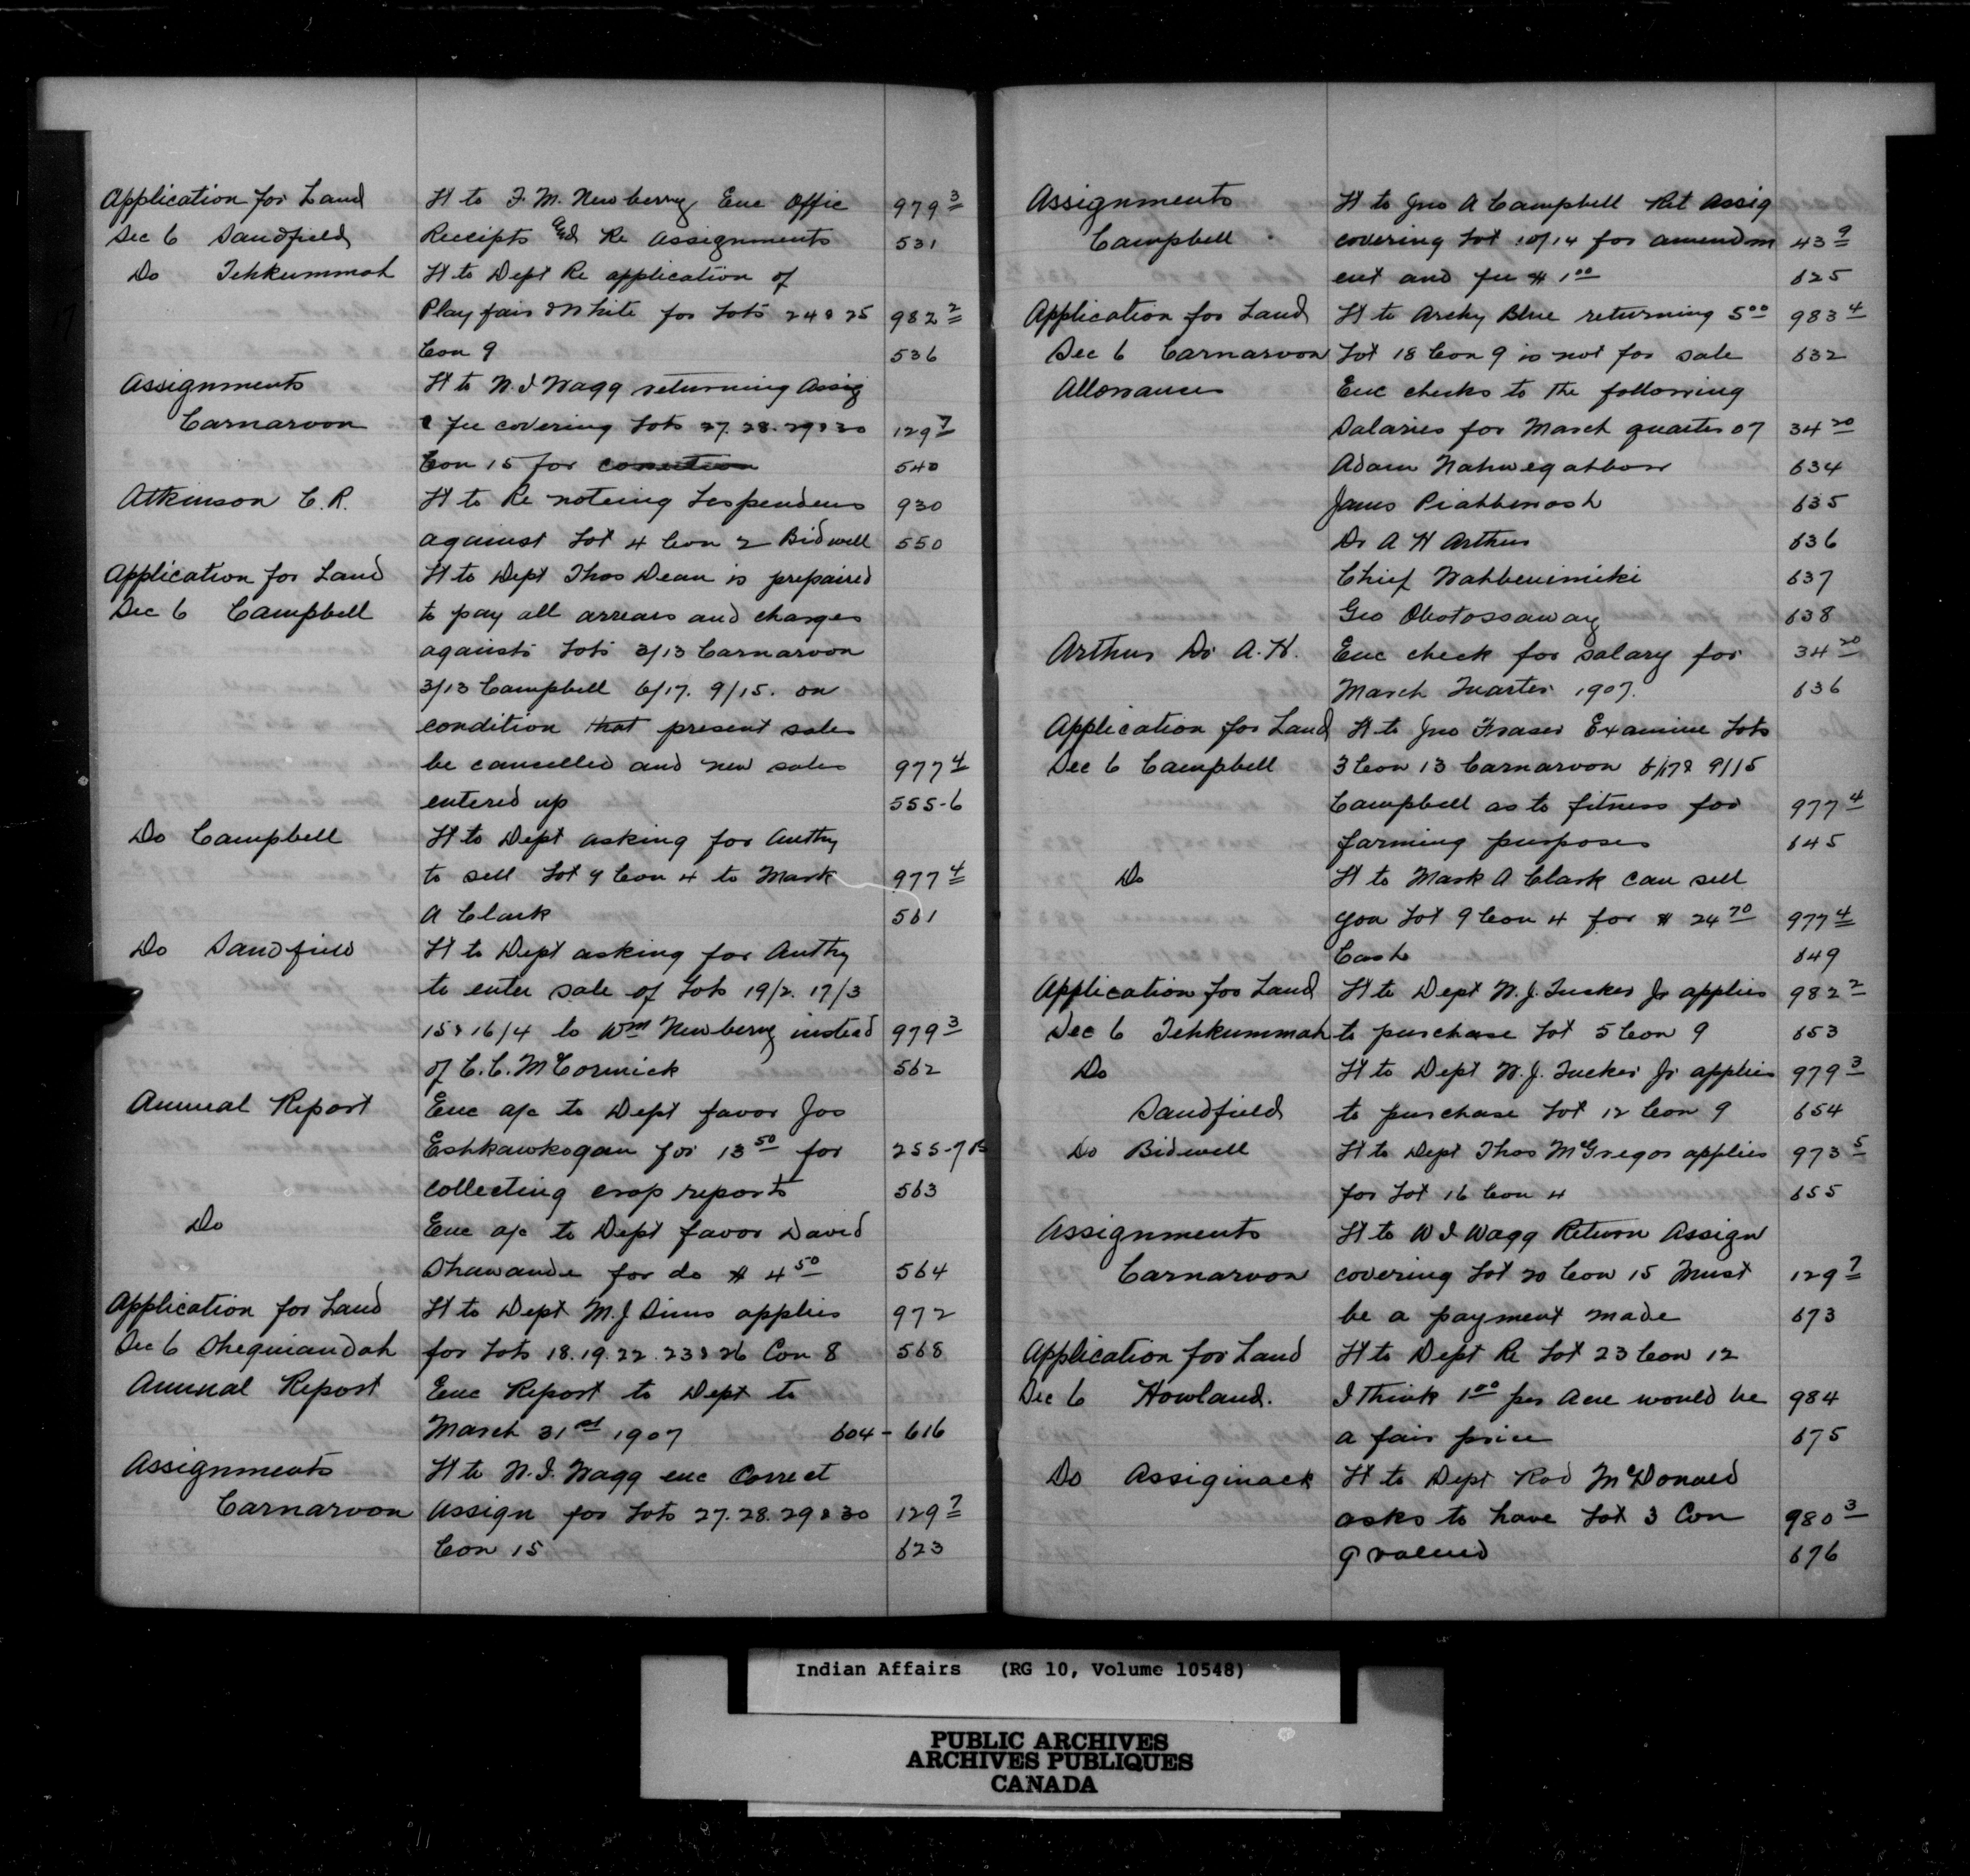 Application for Land Lt to F. M. Newberry Enc Offic 979 3
Sec 6 Sandfield Receipts Re Assignments 531
Do Tehkummah Lt to Dept Re application of
Playfair & White for Lots 24 & 25 982 2
Con 9 536
Assignments Lt to W. I Wagg returning Assig
Carnarvon & fee covering Lots 27. 28. 29 & 30 129 7
Con 15 for correction 540
Atkinson C. R. Lt to Re noteing Lespendens 930
against Lot 4 Con 2 Bidwell 550
Application for Land Lt to Dept Thos Dean is prepaired
Sec 6 Campbell to pay all arrears and charges
against Lots 3/13 Carnarvon
3/13 Campbell 6/17. 9/15. on
condition that present sales
be cancelled and new sales 977 4
entered up 555-6
Do Campbell Lt to Dept asking for Authy
to sell Lot 9 Con 4 to Mark 977 4
A Clark 561
Do Sandfield Lt to Dept asking for Authy
to enter sale of Lots 19/2. 17/3
15 & 16/4 to Wm Newberry instead 979 3
of C. C. McCormick 562
Annual Report Enc a/c to Dept favor Jos
Eshkawkogan for 13 50 for 255-7
collecting crop reports 563
Do Enc a/c to Dept favor David
Shawande for do $ 4 50 564
Application for Land Lt to Dept M. J Sims applies 972
Sec 6 Sheguiandah for Lots 18. 19. 22. 23 & 26 Con 8 568
Annual Report Enc Report to Dept to
March 31st 1907 604 - 616
Assignments Lt to W. I. Wagg enc Correct
Carnarvon Assign for Lots 27. 28. 29 & 30 129 7
Con 15 623
Assignments Lt to Jno A Campbell Ret Assig
Campbell covering Lot 10/14 for amendm 43 9
ent and fee $ 1 00 625
Application for Land Lt to Archy Blue returning 5 00 983 4
Sec 6 Carnarvon Lot 18 Con 9 is not for sale 632
Allowances Enc checks to the following
Salaries for March quarter 07 34 20
Adam Nahwegahbow 634
James Piahbenosh 635
Dr A H Arthur 636
Chief Nahbenimiki 637
Geo Obotossaway 638
Arthur Dr A. H. Enc check for salary for 34 20
March Quarter 1907. 636
Application for Land Lt to Jno Fraser Examine Lots
Sec 6 Campbell 3 Con 13 Carnarvon 6/17 & 9/15
Campbell as to fitness for 977 4
farming purposes 645
Do Lt to Mark A Clark can sell
you Lot 9 Con 4 for $ 24 70 977 4
Cash 649
Application for Land Lt to Dept W. J. Tucker Jr applies 982 2
Sec 6 Tehkummah to purchase Lot 5 Con 9 653
Do Lt to Dept W. J. Tucker Jr applies 979 3
Sandfield to purchase Lot 12 Con 9 654
Do Bidwell Lt to Dept Thos McGregor applies 973 5
for Lot 16 Con 4 655
Assignments Lt to W I Wagg Return Assign
Carnarvon covering Lot 20 Con 15 Must 129 7
be a payment made 673
Application for Land Lt to Dept Re Lot 23 Con 12
Sec 6 Howland. I Think 1 00 per Acre would be 984
a fair price 675
Do Assiginack Lt to Dept Rod McDonald
asks to have Lot 3 Con 980 3
9 valued 676
Indian Affairs (RG 10, Volume 10548)
PUBLIC ARCHIVES
ARCHIVES PUBLIQUES
CANADA